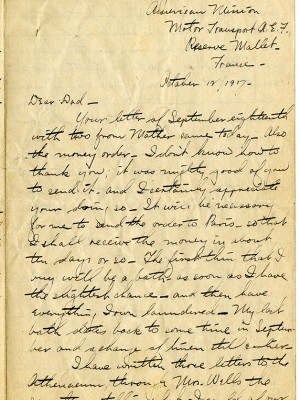 American Mission
Motor Transport A.E.F.
Reserve Mallet
France -
October 12, 1917.
Dear Dad -
Your letter of September eighteenth
with two from Mother came today - Also
the money order - I don't know how to
thank you; it was mighty good of you
to send it - and I certainly appreciate
your doing so - It will be necessary
for me to send the order to Paris - so that
I shall receive the money in about
ten days or so - The first thing that I
will be a bath as soon as I have
the slightest chance - and then have
everything I own laundered - My last
bath dates back to some time in Septem-
ber and a change of linen still earlier -
I have written those letters to the
Athenaeum through Mrs. Wells the